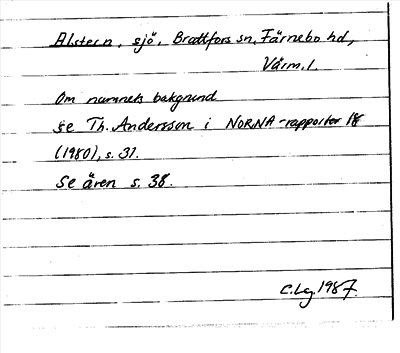 Alstern, sjö, Brattfors sn, Färnebo hd,
Värm. l.
Om namnets bakgrund
se Th. Andersson i NORNA-rapporter 18
(1980), s. 31.
Se även s. 38.
1987.